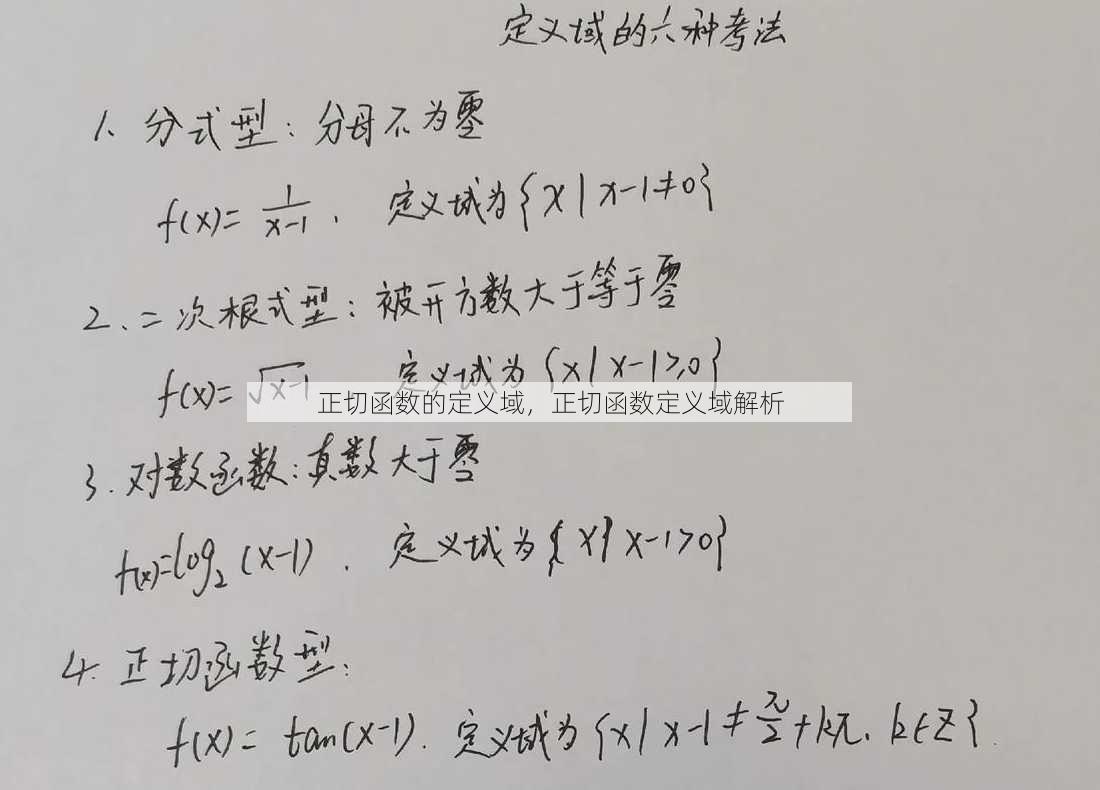 定义域的六种考法
1、分式型：分母不为零
f(x)= 1/(x-1)， 定义域为{x|x-1≠0}
2、二次根式型：被开方数大于等于零
f(x)= √(x-1) 定义域为{x|x-1≥0}
正切函数的定义域，正切函数定义域解析
3.对数函数：真数大于零
f(x)=log₂(x-1)． 定义域为{x|x-1>0}
4.正切函数型：
f(x)= tan(x-1)．定义域为{x|x-1≠π/2+kπ，k∈Z}．